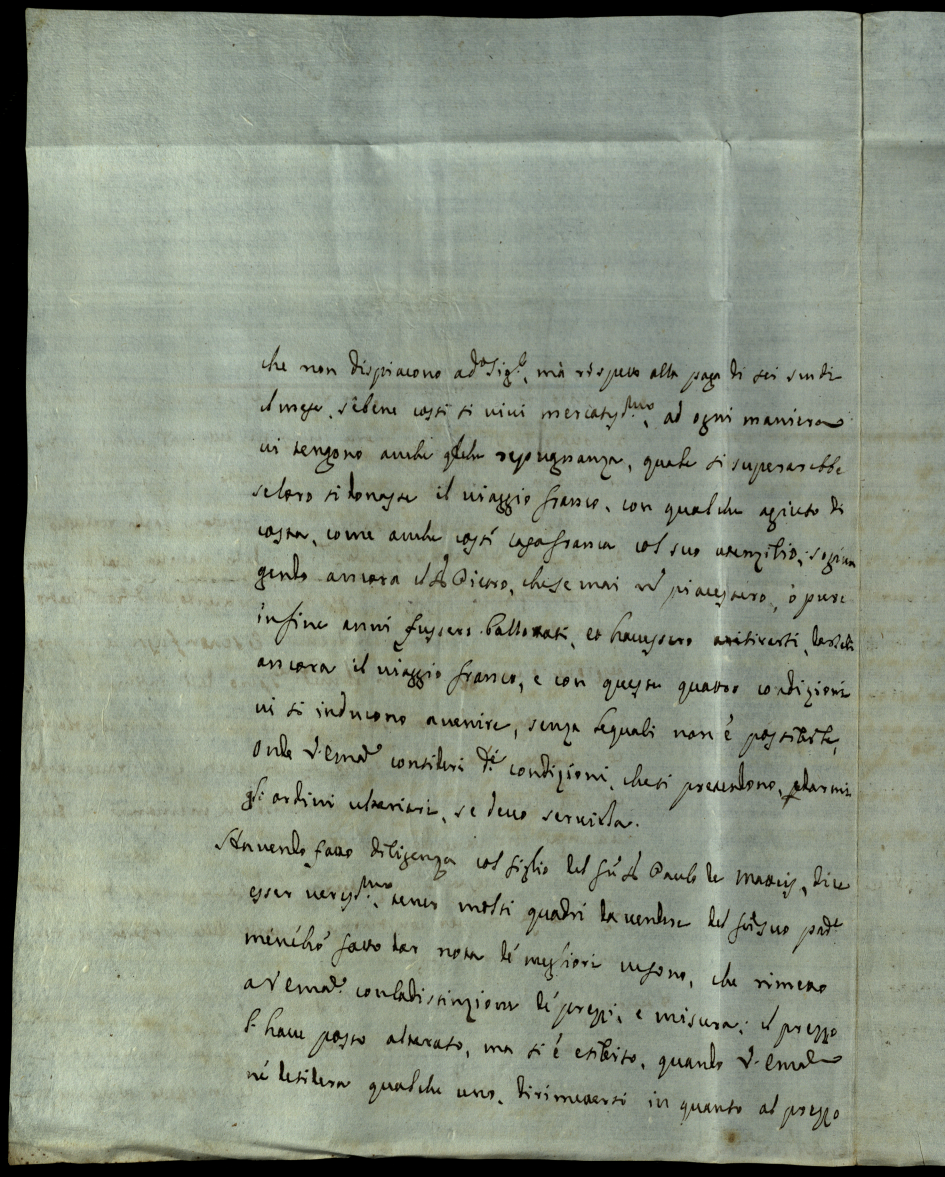 che non dispiacono ad.º Sig.e, mà rispetto alla paga di sei scudi
il mese, sebene costì si vivi mercatiss.mo, ad ogni maniera
vi tengono anche qlche repugnanza, quale si superarebbe
se loro si donasse il viaggio franco, con qualche agiuto di
costa, come anche costì casa franca col suo utenzilio, sogiun
gendo ancora il Sr Pietro, che se mai nō piacessero, ò pure
infine anni fussero ballottati, et havessero a ritirarsi, darseli
ancora il viaggio franco, e con queste quattro condizioni
vi si inducono a venire, senza le quali non è possibile,
onde V. Em.a consideri d.e condizioni, che si pretendono, p darmi
gli ordini ulteriori, se devo servirla.
Havendo fatto diligenza col figlio del fù Sr Paulo de Matteis, dice
esser veriss.mo, tener molti quadri da vendere del fù suo pad.e
mé n'hò fatto dar nota dè megliori ve sono, che rimetto
a V Em.a con la distinzione dè prezzi, e misura; il prezzo
l'have posto alterato, ma si è esibito, quando V. Em.a
né desidera qualche uno, di rimettersi in quanto al prezzo